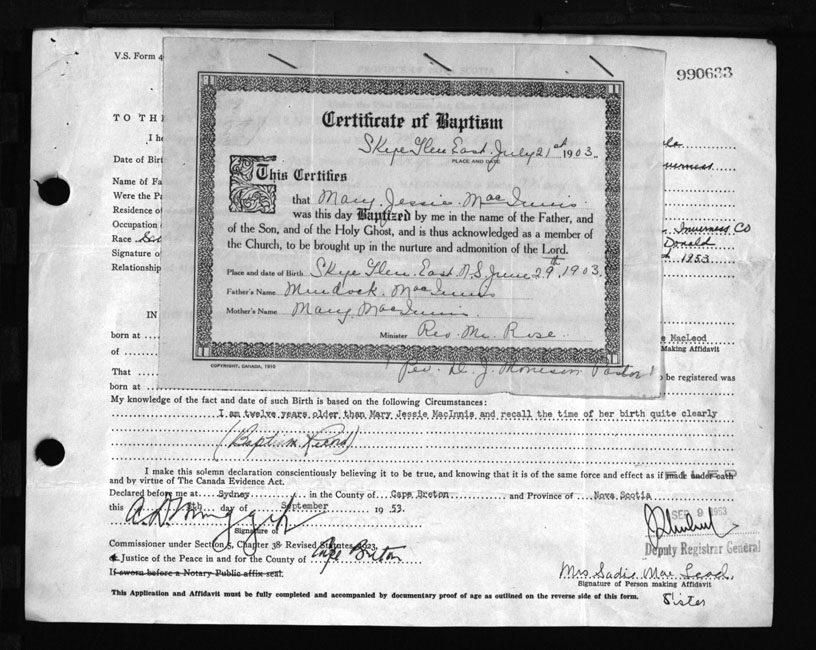 V.S. Form 4
990633
Certificate of Baptism
Skye Glen East July 21st 1903.
PLACE AND DATE
This Certifies
that Mary Jessie MacInnis
was this day Baptized by me in the name of the Father, and
of the Son, and of the Holy Ghost, and is thus acknowledged as a member of
the Church, to be brought up in the nurture and admonition of the Lord.
Place and date of Birth Skye Glen East N.S June 29th, 1903.
Father's Name Murdock MacInnis
Mother's Name Mary MacInnis
Minister Rev. Mr. Rose
COPYRIGHT, CANADA, 1910
Rev. D. J. Morrison Pastor
TO TH
I he
Date of Birt
Inverness
Name of Fa
Were the Pa
Residence o
Occupation
Inverness Co
Race
Donald
Signature o
1953
Relationship
IN
born at
e MacLeod
of
Making Affidavit
That
be registered was
born at
My knowledge of the fact and date of such Birth is based on the following Circumstances:
I am twelve years older than Mary Jessie MacInnis and recall the time of her birth quite clearly
(Baptism Record)
I make this solemn declaration conscientiously believing it to be true, and knowing that it is of the same force and effect as if made under oath
and by virtue of The Canada Evidence Act.
Declared before me at Sydney in the County of Cape Breton and Province of Nova Scotia
this 8th day of September 1953.
SEP 9 1953
Signature of
Deputy Registrar General
Commissioner under Section 5, Chapter 38 Revised Statutes 1923,
Justice of the Peace in and for the County of Cape Breton
If sworn before a Notary Public affix seal.
Mrs Sadie MacLeod.
Signature of Person making Affidavit
This Application and Affidavit must be fully completed and accompanied by documentary proof of age as outlined on the reverse side of this form.
Sister